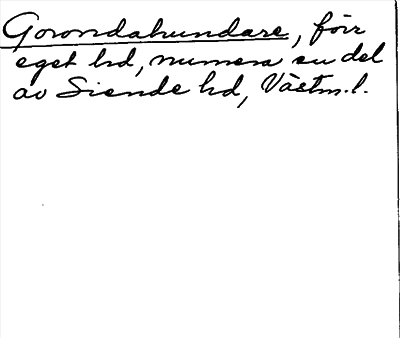 Gorondahundare, förr
eget hd, numera en del
av Siende hd, Västm.l.